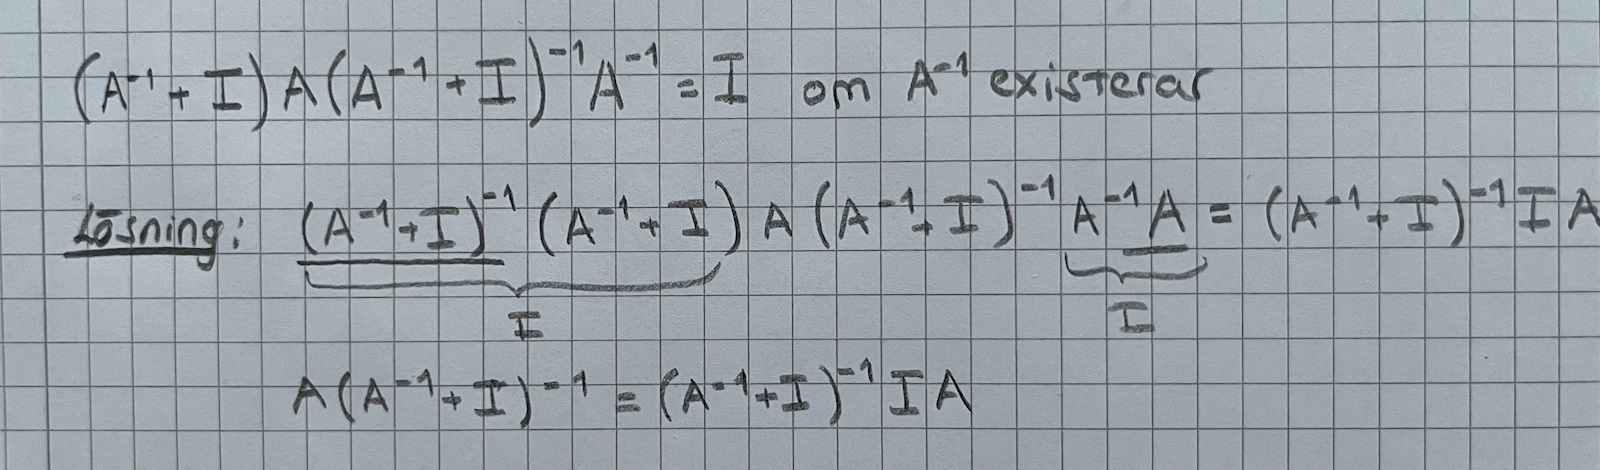 (A⁻¹ + I) A (A⁻¹ + I)⁻¹ A⁻¹ = I om A⁻¹ existerar
Lösning: (A⁻¹ + I)⁻¹ (A⁻¹ + I) A (A⁻¹ + I)⁻¹ A⁻¹ A = (A⁻¹ + I)⁻¹ I A
I I
A (A⁻¹ + I)⁻¹ = (A⁻¹ + I)⁻¹ I A